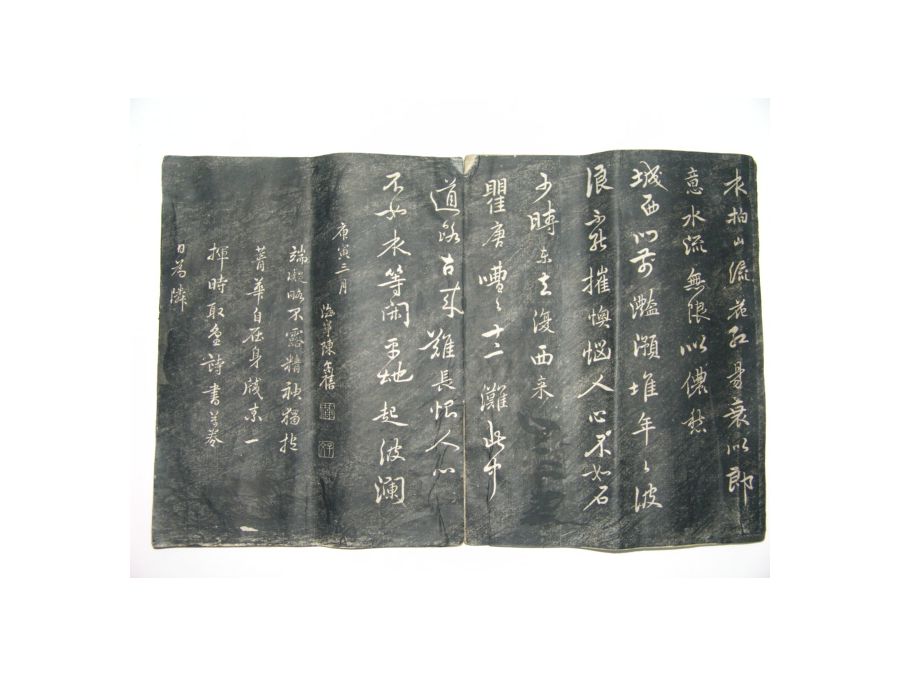 水拍山流花紅易衰似郎
意水流無限似儂愁
城西門前灩澦堆年々波
浪不能摧懊惱人心不如石
少時東去復西来
瞿唐嘈々十二灘此中
道路古来難長恨人心
不如水等閑平地起波瀾
庚寅三月
海寧陳奕禧
端凝略不露精神猶抱
菁華自在身一
揮時取詩書萬卷
日為隣